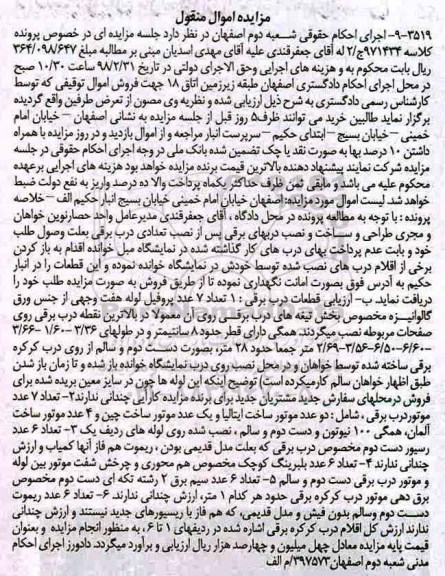 مزایده اموال منقول
۳۵۱۹-۹- اجرای احکام حقوقی شعبه دوم اصفهان در نظر دارد جلسه مزایده ای در خصوص پرونده
کلاسه ۹۷۱۴۳۴ج/۲ له آقای جعفرقندی علیه آقای مهدی اسدیان مبنی بر مطالبه مبلغ ۳۶۴/۰۹۸/۶۴۷
ریال بابت محکوم به و هزینه های اجرایی وحق الاجرای دولتی در تاریخ ۹۸/۲/۳۱ ساعت ۱۰/۳۰ صبح
در محل اجرای احکام دادگستری اصفهان طبقه زیرزمین اتاق ۱۸ جهت فروش اموال توقیفی که توسط
کارشناس رسمی دادگستری به شرح ذیل ارزیابی شده و نظریه وی مصون از تعرض طرفین واقع گردیده
برگزار نماید طالبین خرید می توانند ظرف۵ روز قبل از جلسه مزایده به نشانی اصفهان – خیابان امام
خمینی – خیابان بسیج – ابتدای حکیم – سرپرست انبار مراجعه و از اموال بازدید و در روز مزایده با همراه
داشتن ۱۰ درصد بها به صورت نقد یا چک تضمین شده بانک ملی در وجه اجرای احکام حقوقی در جلسه
مزایده شرکت نمایند پیشنهاد دهنده بالاترین قیمت برنده مزایده خواهد بود هزینه های اجرایی برعهده
محکوم علیه می باشد و مابقی ثمن ظرف حداکثر یکماه پرداخت والا ده درصد واریز به نفع دولت ضبط
خواهد شد. لیست اموال مورد مزایده: اصفهان خیابان امام خمینی خیابان بسیج انبار حکیم الف – خلاصه
پرونده : با توجه به مطالعه پرونده در محل دادگاه ، آقای جعفرقندی مدیرعامل واحد حصارنوین خواهان
و مجری طراحی و ساخت و نصب دربهای برقی پس از نصب تعدادی درب برقی بعلت وصول طلب
خود و بابت عدم پرداخت بهای درب های کار گذاشته شده در نمایشگاه مبل خوانده اقدام به باز کردن
برخی از اقلام درب های نصب شده توسط خودش در نمایشگاه خوانده نموده و این قطعات را در انبار
حکیم به آدرس فوق بصورت امانت نگهداری نموده تا از طریق فروش به صورت مزایده طلب خود را
دریافت نماید. ب- ارزیابی قطعات درب برقی : ۱ تعداد ۷ عدد پروفیل لوله هفت وجهی از جنس ورق
گالوانیزه مخصوص بخش تیغه های درب برقی روی آن معمولا در بالاترین نقطه درب برقی روی
صفحات مربوطه نصب میگردند. همگی دارای قطر حدود ۸ سانتیمتر و در طولهای ۳/۳۶ –۱/۶۰ –۳/۶۶
–۶/۶۰–۶/۵۰–۳/۵۶–۲/۶۹ متر جمعا حدود ۲۸ متر، بصورت دست دوم و سالم از روی درب کرکره
برقی ساخته شده توسط خواهان و در محل نصب روی درب نمایشگاه خوانده باز شده و تا زمان باز شدن
طبق اظهار خواهان سالم کارمیکرده است) توضیح اینکه این لوله ها چون در سایز معین بریده شده برای
فروش درمحلهای سفارش جدید مشتریان جدید برای برنده مزایده کارآیی چندانی ندارند۲- تعداد ۷ عدد
موتوردرب برقی ، شامل : دو عدد موتور ساخت ایتالیا و یک عدد موتور ساخت چین و ۴ عدد موتور ساخت
آلمان، همگی ۱۰۰ نیوتون و دست دوم و سالم ، نصب شده روی لوله های ردیف یک ۳- تعداد ۶ عدد
رسیور دست دوم مخصوص درب برقی که بعلت مدل قدیمی بودن ، ریموت هم فاز آنها کمیاب و ارزش
چندانی ندارند ۴- تعداد ۶ عدد بلبرینگ کوچک مخصوص هم محوری و چرخش شفت موتور بین لوله
و موتور درب برقی دست دوم و سالم ۵- تعداد ۶ عدد سیم برق ۲ رشته تکه ای دست دوم مخصوص
برق دهی موتور درب کرکره برقی حدود هر کدام ۱ متر، ارزش چندانی ندارند. ۶- تعداد ۶ عدد ریموت
دست دوم وسالم بدون فیش و مدل قدیمی، که هم فاز با ریسیورهای جدید نیستند و ارزش چندانی
ندارند ارزش کل اقلام درب کرکره برقی اشاره شده در ردیفهای ۱ تا ۶، به منظور انجام مزایده و بعنوان
قیمت پایه مزایده معادل چهل میلیون و چهارصد هزار ریال ارزیابی و برآورد میگردد. دادورز اجرای احکام
مدنی شعبه دوم اصفهان۳۹۷۵۷۳/م الف